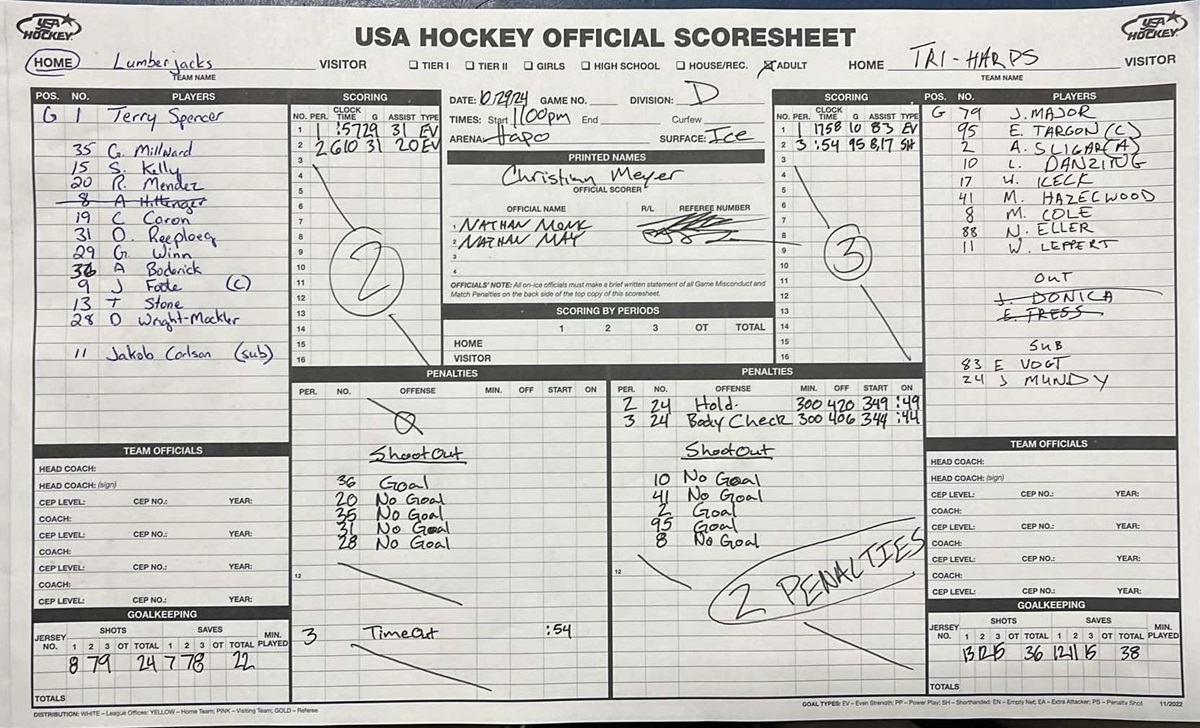 USA HOCKEY
USA HOCKEY OFFICIAL SCORESHEET
USA HOCKEY
HOME Lumberjacks VISITOR
TEAM NAME
☐ TIER I ☐ TIER II ☐ GIRLS ☐ HIGH SCHOOL ☐ HOUSE/REC. ☒ ADULT
HOME TRI-HARPS VISITOR
TEAM NAME
POS. NO. PLAYERS
G 1 Terry Spencer
35 G. Millward
15 S. Kelly
20 R. Mendez
8 A Hittenger
19 C Caron
31 D. Reeploeg
29 G. Winn
36 A Boderick
9 J Foote (C)
13 T Stone
28 D Wright-Mockler
11 Jakob Carlson (sub)
SCORING
NO. PER. CLOCK TIME G ASSIST TYPE
1 1 :57 29 31 EV
2 2 610 31 20 EV
3
4
5
6
7
8
9
10
11
12
13
14
15
16
2
DATE: 10/29/24 GAME NO. DIVISION: D
TIMES: Start 1100pm End Curfew
ARENA: Hapo SURFACE: Ice
PRINTED NAMES
Christian Meyer
OFFICIAL SCORER
OFFICIAL NAME R/L REFEREE NUMBER
1 NATHAN MONK
2 NATHAN MAY
3
4
OFFICIALS' NOTE: All on-ice officials must make a brief written statement of all Game Misconduct and
Match Penalties on the back side of the top copy of this scoresheet.
SCORING BY PERIODS
1 2 3 OT TOTAL
HOME
VISITOR
SCORING
NO. PER. CLOCK TIME G ASSIST TYPE
1 1 1758 10 83 EV
2 3 :54 95 8,17 SH
3
4
5
6
7
8
9
10
11
12
13
14
15
16
3
POS. NO. PLAYERS
G 79 J. MAJOR
95 E. TARGON (C)
2 A. SLIGAR (A)
10 L. DANZITUG
17 H. KECK
41 M. HAZELWOOD
8 M. COLE
88 N. ELLER
11 W. LEPPERT
OUT
J. DONICA
E. TRESS
SUB
83 E VOGT
24 J MUNDY
PENALTIES
PER. NO. OFFENSE MIN. OFF START ON
0
ShootOut
36 Goal
20 No Goal
35 No Goal
31 No Goal
28 No Goal
12
3 TimeOut :54
PENALTIES
PER. NO. OFFENSE MIN. OFF START ON
2 24 Hold. 300 420 349 :49
3 24 Body Check 300 406 344 :44
ShootOut
10 No Goal
41 No Goal
2 Goal
95 Goal
8 No Goal
12
2 PENALTIES
TEAM OFFICIALS
HEAD COACH:
HEAD COACH: (sign)
CEP LEVEL: CEP NO.: YEAR:
COACH:
CEP LEVEL: CEP NO.: YEAR:
COACH:
CEP LEVEL: CEP NO.: YEAR:
COACH:
CEP LEVEL: CEP NO.: YEAR:
GOALKEEPING
JERSEY NO. SHOTS 1 2 3 OT TOTAL SAVES 1 2 3 OT TOTAL MIN. PLAYED
8 7 9 24 7 7 8 22
TOTALS
TEAM OFFICIALS
HEAD COACH:
HEAD COACH: (sign)
CEP LEVEL: CEP NO.: YEAR:
COACH:
CEP LEVEL: CEP NO.: YEAR:
COACH:
CEP LEVEL: CEP NO.: YEAR:
COACH:
CEP LEVEL: CEP NO.: YEAR:
GOALKEEPING
JERSEY NO. SHOTS 1 2 3 OT TOTAL SAVES 1 2 3 OT TOTAL MIN. PLAYED
13 12 15 36 12 11 15 38
TOTALS
DISTRIBUTION: WHITE – League Offices: YELLOW – Home Team; PINK – Visiting Team; GOLD – Referee
GOAL TYPES: EV – Even Strength; PP – Power Play; SH – Shorthanded; EN – Empty Net; EA – Extra Attacker; PS – Penalty Shot 11/2022